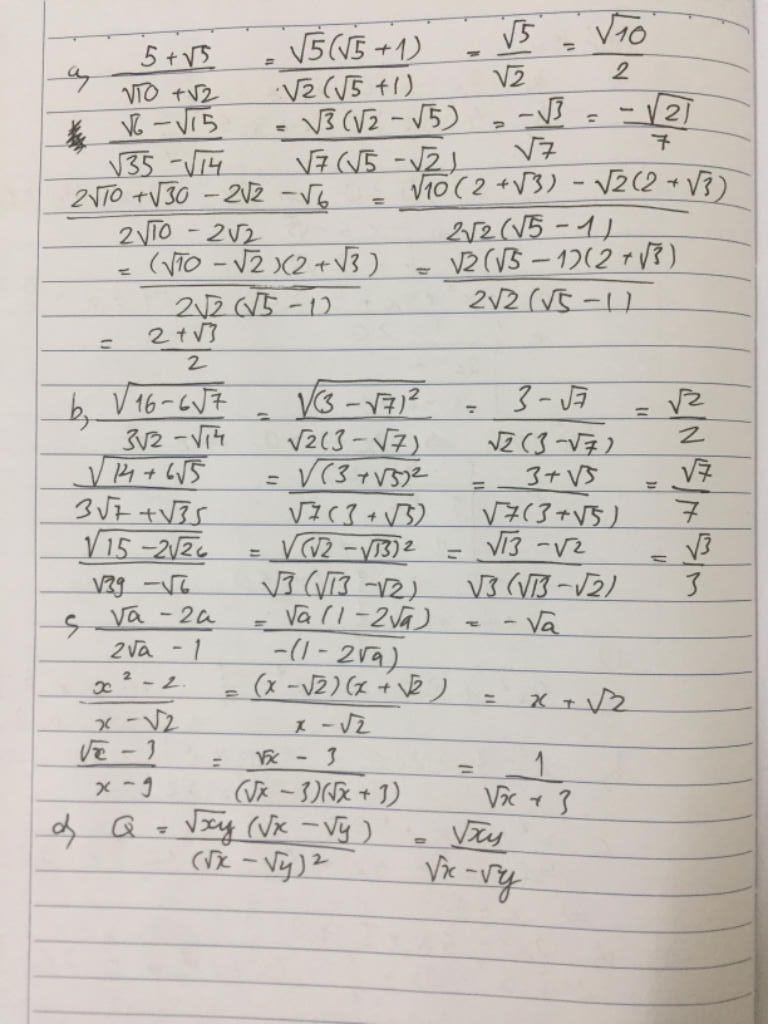 a, (5 + √5)/(√10 + √2) = √5(√5 + 1)/√2(√5 + 1) = √5/√2 = √10/2
(√6 − √15)/(√35 − √14) = √3(√2 − √5)/√7(√5 − √2) = −√3/√7 = −√21/7
(2√10 + √30 − 2√2 − √6)/(2√10 − 2√2) = (√10(2 + √3) − √2(2 + √3))/2√2(√5 − 1)
= (√10 − √2)(2 + √3)/2√2(√5 − 1) = √2(√5 − 1)(2 + √3)/2√2(√5 − 1)
= (2 + √3)/2
b, √(16 − 6√7)/(3√2 − √14) = √((3 − √7)²)/√2(3 − √7) = (3 − √7)/√2(3 − √7) = √2/2
√(14 + 6√5)/(3√7 + √35) = √((3 + √5)²)/√7(3 + √5) = (3 + √5)/√7(3 + √5) = √7/7
√(15 − 2√26)/(√39 − √6) = √((√2 − √13)²)/√3(√13 − √2) = (√13 − √2)/√3(√13 − √2) = √3/3
c, (√a − 2a)/(2√a − 1) = √a(1 − 2√a)/−(1 − 2√a) = −√a
(x² − 2)/(x − √2) = (x − √2)(x + √2)/(x − √2) = x + √2
(√x − 3)/(x − 9) = (√x − 3)/(√x − 3)(√x + 3) = 1/(√x + 3)
d, Q = √xy(√x − √y)/(√x − √y)² = √xy/(√x − √y)